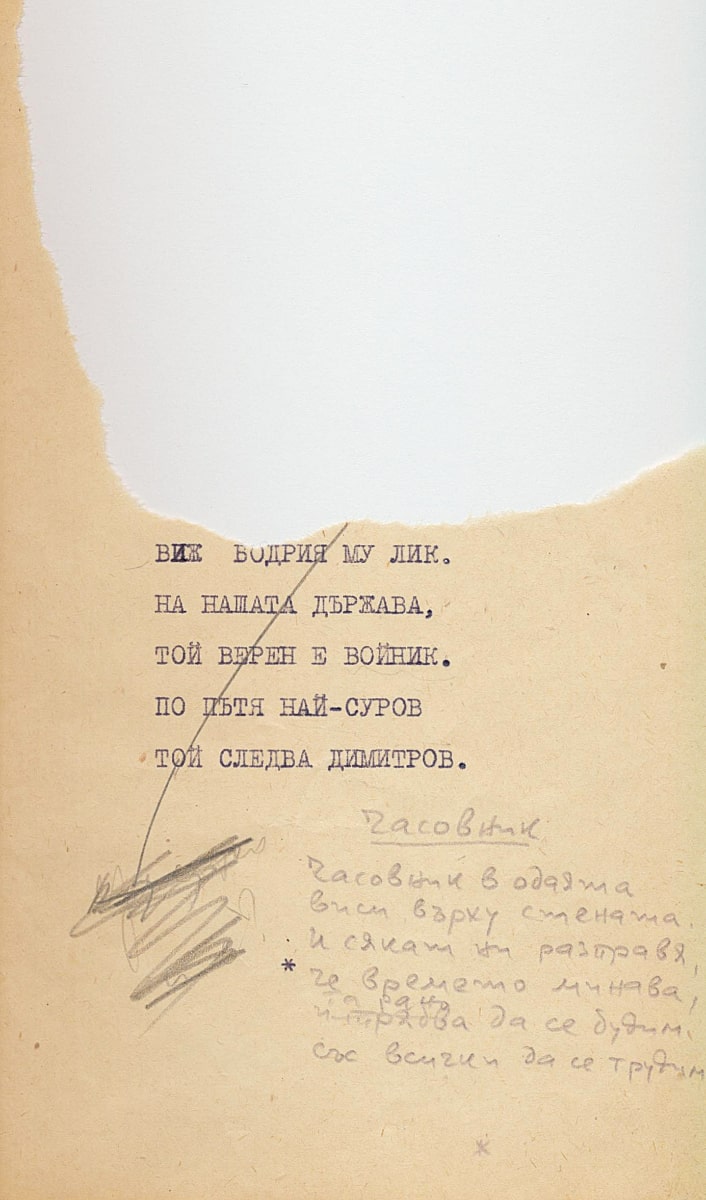 ВИЖ БОДРИЯ МУ ЛИК.
НА НАШАТА ДЪРЖАВА,
ТОЙ ВЕРЕН Е ВОЙНИК.
ПО ПЪТЯ НАЙ-СУРОВ
ТОЙ СЛЕДВА ДИМИТРОВ.
Часовник
Часовник в одаята
виси върху стената.
И сякаш ни разправя,
*
че времето минава,
та рано
и трябва да се будим.
със всички да се трудим
*